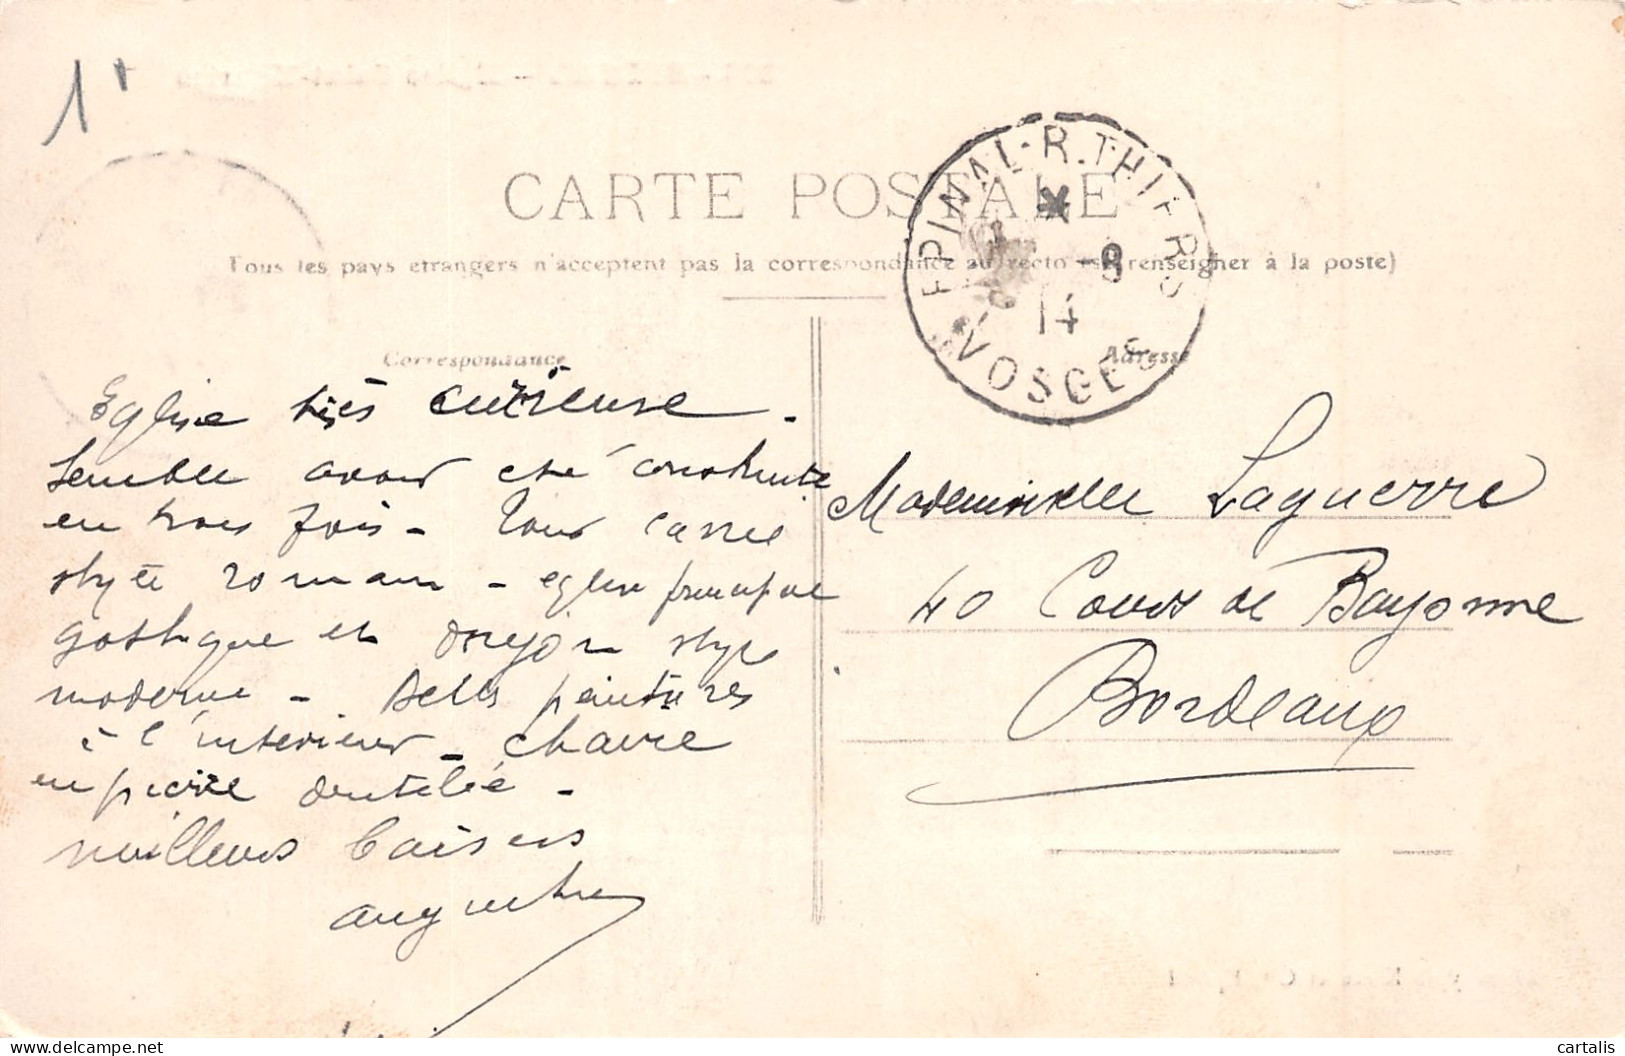 1
CARTE POSTALE
Tous les pays étrangers n'acceptent pas la correspondance au recto (se renseigner à la poste)
EPINAL-R. THIERS
-8
14
VOSGES
Correspondance
Adresse
Eglise très curieuse -
semble avoir été construite
en trois fois - Tour carrée
style roman - eglise principale
gothique et donjon style
moderne - Belles peintures
à l'intérieur - chaire
en pierre dentelée -
meilleurs baisers
Mademoiselle Laguerre
40 Cours de Bayonne
Bordeaux
cartalis